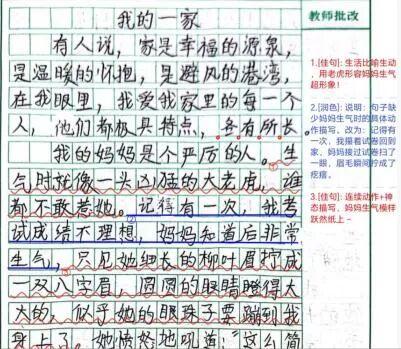 我的一家
教师批改
有人说，家是幸福的源泉，
是温暖的怀抱，是避风的港湾，
在我眼里，我爱我家里的每一个
人，他们都极具特点，各有所长。
我的妈妈是个严厉的人。生
气时就像一头凶猛的大老虎，谁
都不敢惹她。记得有一次，我考
试成绩不理想，妈妈知道后非常
生气，只见她细长的柳叶眉拧成
一双八字眉，圆圆的眼睛瞪得大
大的，似乎她的眼珠子要蹦到我
身上了。她愤怒地吼道：“这么简
1.[佳句]: 生活比喻生动
，用老虎形容妈妈生气
超形象！
2.[润色]: 说明：句子缺
少妈妈生气时的具体动
作描写，改为：记得有
一次，我攥着试卷回到
家，妈妈接过试卷扫了
一眼，眉毛瞬间拧成了
疙瘩。
3.[佳句]: 连续动作+神
态描写，妈妈生气模样
跃然纸上～